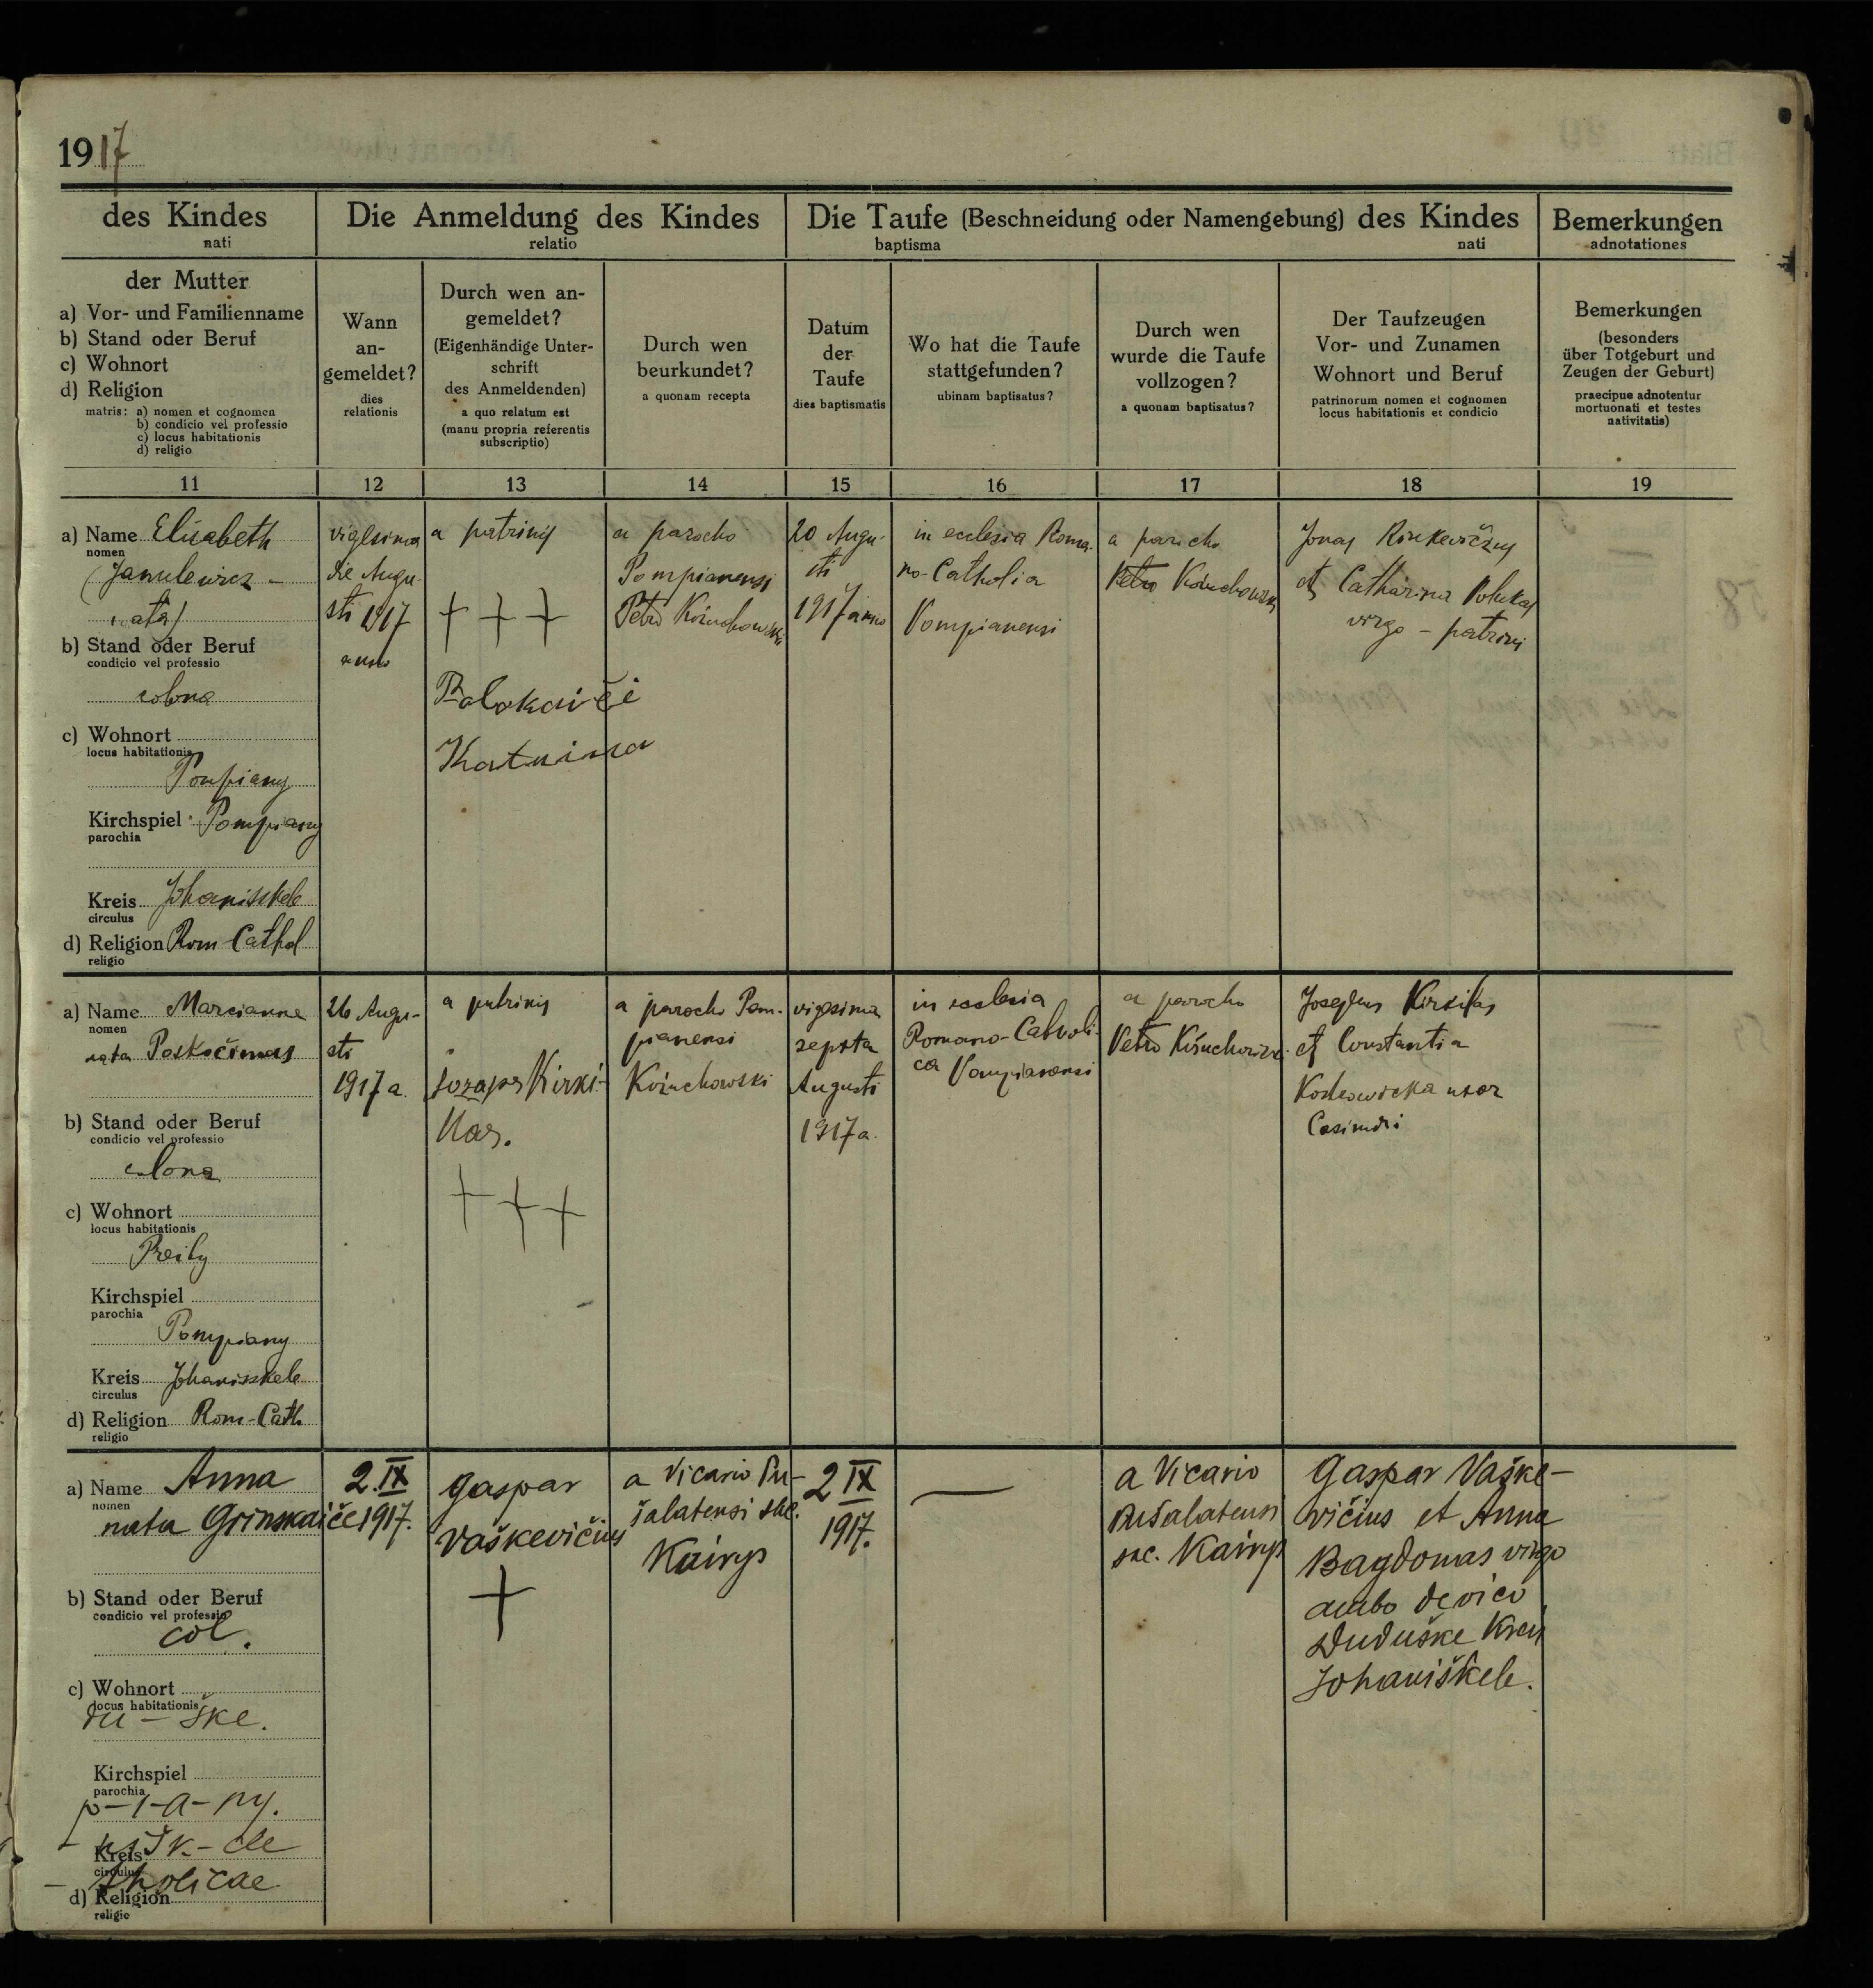 1917
des Kindes
nati
Die Anmeldung des Kindes
relatio
Die Taufe (Beschneidung oder Namengebung) des Kindes
baptisma nati
Bemerkungen
adnotationes
der Mutter
a) Vor- und Familienname
b) Stand oder Beruf
c) Wohnort
d) Religion
matris: a) nomen et cognomen
b) condicio vel professio
c) locus habitationis
d) religio
Wann
an-
gemeldet?
dies
relationis
Durch wen an-
gemeldet?
(Eigenhändige Unter-
schrift
des Anmeldenden)
a quo relatum est
(manu propria referentis
subscriptio)
Durch wen
beurkundet?
a quonam recepta
Datum
der
Taufe
dies baptismatis
Wo hat die Taufe
stattgefunden?
ubinam baptisatus?
Durch wen
wurde die Taufe
vollzogen?
a quonam baptisatus?
Der Taufzeugen
Vor- und Zunamen
Wohnort und Beruf
patrinorum nomen et cognomen
locus habitationis et condicio
Bemerkungen
(besonders
über Totgeburt und
Zeugen der Geburt)
praecipue adnotentur
mortuonati et testes
nativitatis)
11 12 13 14 15 16 17 18 19
a) Name Elisabeth
nomen
(Janulewicz -
nata)
b) Stand oder Beruf
condicio vel professio
colona
c) Wohnort
locus habitationis
Pompiany
Kirchspiel Pompiany
parochia
Kreis Johanisskele
circulus
d) Religion Rom Cathol
religio
vigesima
die Augu-
sti 1917
anno
a patrinis
+ + +
Polokaičė
Katrina
a parocho
Pompianensi
Petro
20 Augu-
sti
1917 anno
in ecclesia Roma-
no-Catholia
Pompianensi
a parocho
Petro
Jonas Rinkevičius
et Catharina
virgo - patrini
—
a) Name Marcianna
nomen
nata
b) Stand oder Beruf
condicio vel professio
colona
c) Wohnort
locus habitationis
Kirchspiel
parochia
Pompiany
Kreis Johanisskele
circulus
d) Religion Rom-Cath
religio
26 Augu-
sti
1917 a.
a patrinis
Juzapas Kirki-
las.
+ + +
a parocho Pom-
pianensi
vigesima
septa
Augusti
1917 a.
in ecclesia
Romano-Catholi-
ca Pompianensi
a parocho
Petro
Josephus Kirkilas
et Constantia
uxor
Casimiri
—
a) Name Anna
nomen
nata Grinskaičė
b) Stand oder Beruf
condicio vel professio
col.
c) Wohnort
locus habitationis
du - ške.
Kirchspiel
parochia
p-i-a-ny.
- nišk-ele
Kreis
circulus
- tholicae
d) Religion
religio
2.IX
1917.
Gaspar
Vaškevičius
+
a Vicario Pu-
šalatensi sac.
Kairys
2 IX
1917.
—
a Vicario
Pušalatensi
sac. Kairys
Gaspar Vaške-
vičius et Anna
Bagdonas virgo
ambo de vico
Duduške Kreis
Johaniškele.
—